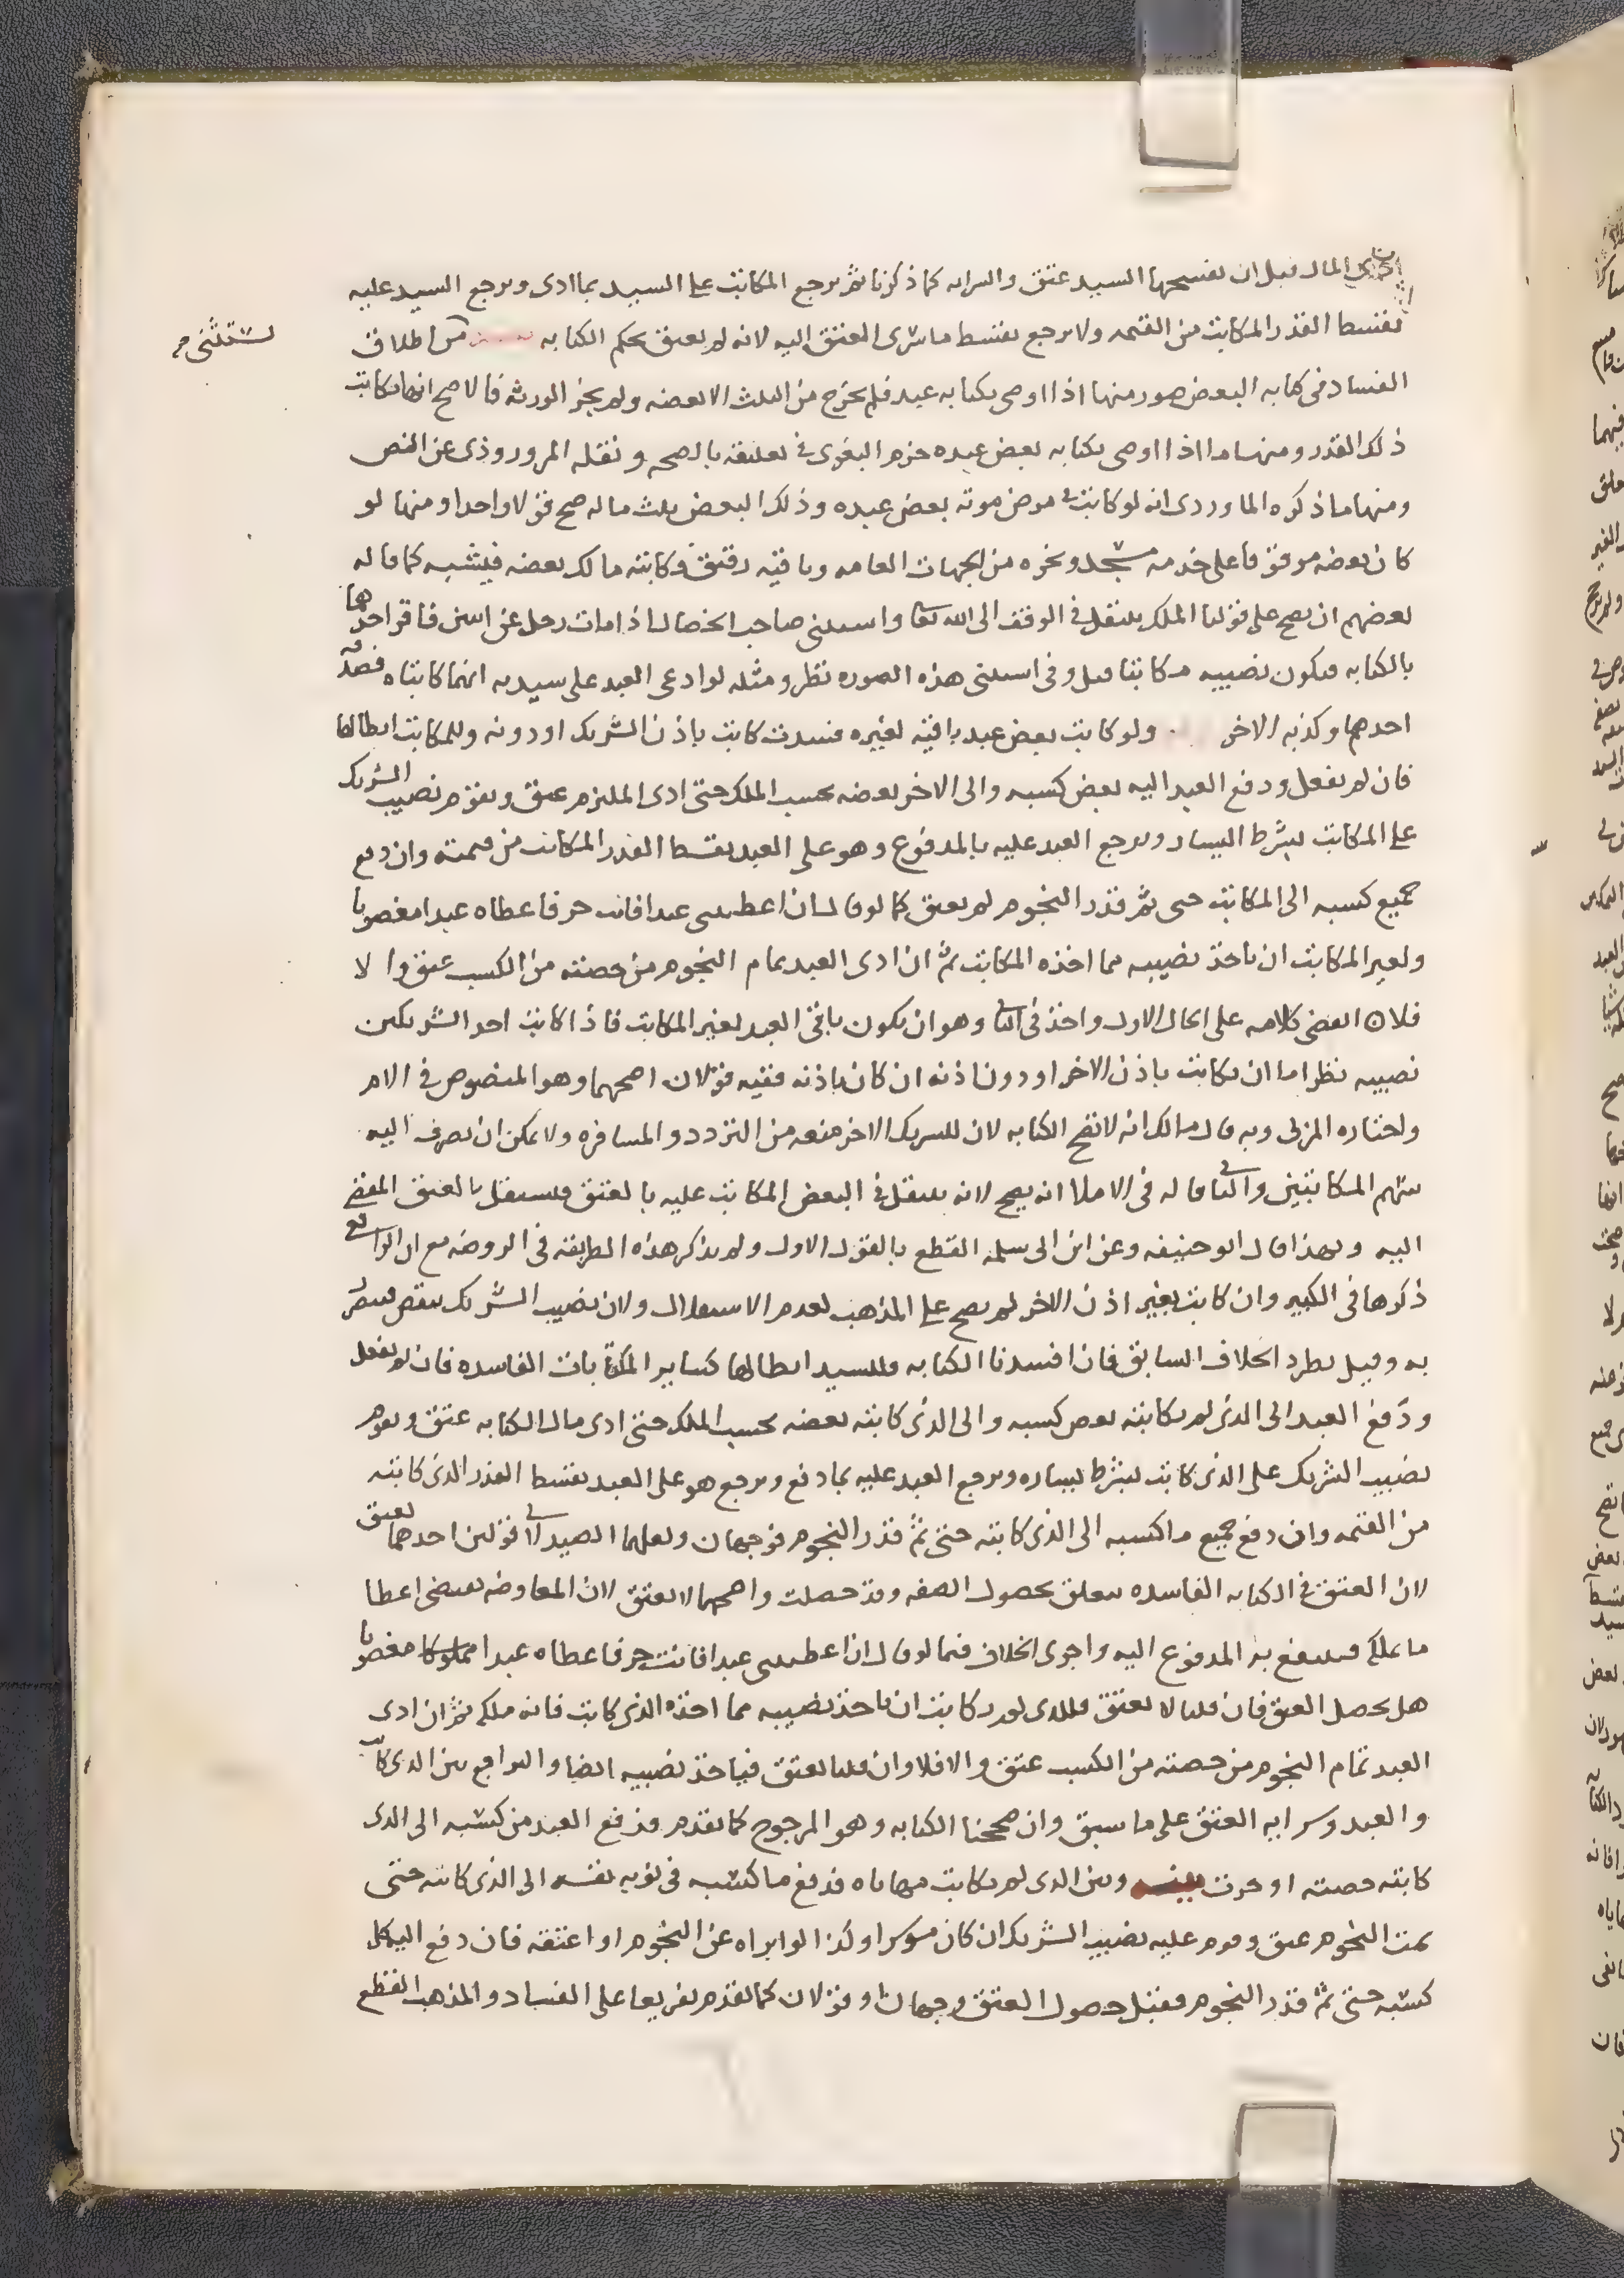 ادى المال قبل ان يفسخها السيد عتق والسرايه كما ذكرنا ثم يرجع المكاتب على السيد بما ادى ويرجع السيد عليه
بقسط القدر المكاتب من القيمه ولا يرجع بقسط ما سرى العتق اليه لانه لم يعتق بحكم الكتابه من اطلاق
يستثنى
الفساد فى كتابه البعض صور منها اذا اوصى بكتابه عبد فلم يخرج من الثلث الا بعضه ولم يجز الورثه فالاصح انها يكاتب
ذلك القدر ومنها ما اذا اوصى بكتابه بعض عبده جزم البغوى فى تعليقه بالصحه ونقله المروروذى عن النص
ومنها ما ذكره الماوردى انه لو كاتب فى مرض موته بعض عبده وذلك البعض ثلث ماله صح قولا واحدا ومنها لو
كان بعضه موقوفا على خدمه مسجد ونحوه من الجهات العامه وباقيه رقيق وكاتبه مالك بعضه فيشبه كما قاله
بعضهم ان يصح على قولنا الملك ينتقل فى الوقف الى الله تعا واستثنى صاحب الخصال اذا مات رجل عن اثنين فاقر احدهما
بالكتابه فيكون نصيبه مكاتبا قيل وفى استثنى هذه الصوره نظر ومثله لو ادعى العبد على سيديه انهما كاتباه فصدقه
احدهما وكذبه الاخر ولو كاتب بعض عبد باقيه لغيره فسدت كاتب باذن الشريك او دونه وللمكاتب ابطالها
فان لم يفعل ودفع العبد اليه بعض كسبه والى الاخر بعضه بحسب الملك حتى ادى الملتزم عتق ويقوم نصيب الشريك
على المكاتب بشرط اليسار ويرجع العبد عليه بالمدفوع وهو على العبد بقسط القدر المكاتب من قيمته وان دفع
جميع كسبه الى المكاتب حتى تم قدر النجوم لم يعتق كما لو قال ان اعطيتنى عبدا فانت حر فاعطاه عبدا مغصوبا
ولغير المكاتب ان ياخذ نصيبه مما اخذه المكاتب ثم ان ادى العبد تمام النجوم من حصته من الكسب عتق والا
فلا ۞ انقضى كلامه على الحال الاول واخذ فى الثانى وهو ان يكون باقى العبد لغير المكاتب فاذا كاتب احد الشريكين
نصيبه نظر اما ان يكاتب باذن الاخر او دون اذنه ان كان باذنه ففيه قولان اصحهما وهو المنصوص فى الام
واختاره المزنى وبه قال مالك انه لا تصح الكتابه لان للشريك الاخر منعه من التردد والمسافره ولا يمكن ان يصرف اليه
سهم المكاتبين والثانى قاله فى الاملا انه يصح لانه يستقل فى البعض المكاتب عليه بالعتق ويستقل بالعتق المفضى
اليه وبهذا قال ابو حنيفه وعن ابن ابى سلمه القطع بالقول الاول ولم يذكر هذه الطريقه فى الروضه مع ان الرافعى
ذكرها فى الكبير وان كاتب بغير اذن الاخر لم يصح على المذهب لعدم الاستقلال ولان نصيب الشريك ينقص فيتضرر
به وقيل يطرد الخلاف السابق فان افسدنا الكتابه فللسيد ابطالها كساير المكاتبات الفاسده فان لم يفعل
ودفع العبد الى الذى لم يكاتبه بعض كسبه والى الذى كاتبه بعضه بحسب الملك حتى ادى مال الكتابه عتق ويقوم
نصيب الشريك على الذى كاتب بشرط يساره ويرجع العبد عليه بما دفع ويرجع هو على العبد بقسط القدر الذى كاتبه
من القيمه وان دفع جميع ما اكتسبه الى الذى كاتبه حتى تم قدر النجوم فوجهان ونقلهما الصيدلانى قولين احدهما يعتق
لان العتق فى الكتابه الفاسده يتعلق بحصول الصفه وقد حصلت واصحهما لا يعتق لان المعاوضه تقتضى اعطا
ما يملك فينتفع به المدفوع اليه واجرى الخلاف فيما لو قال ان اعطيتنى عبدا فانت حر فاعطاه عبدا مملوكا مغصوبا
هل يحصل العتق فان قلنا لا يعتق فللذى لم يكاتب ان ياخذ نصيبه مما اخذه الذى كاتب فانه ملكه ثم ان ادى
العبد تمام النجوم من حصته من الكسب عتق والا فلا وان قلنا يعتق فياخذ نصيبه ايضا والتراجع بين الذى كاتب
والعبد وسرايه العتق على ما سبق وان صححنا الكتابه وهو المرجوح كما تقدم فدفع العبد من كسبه الى الذى
كاتبه حصته او جرت بينه وبين الذى لم يكاتب مهاياه فدفع ما كسبه فى نوبه نفسه الى الذى كاتبه حتى
تمت النجوم عتق وقوم عليه نصيب الشريك ان كان موسرا وكذا لو ابراه عن النجوم او اعتقه فان دفع اليه كل
كسبه حتى تم قدر النجوم فقيل حصول العتق وجهان او قولان كما تقدم تفريعا على الفساد والمذهب القطع